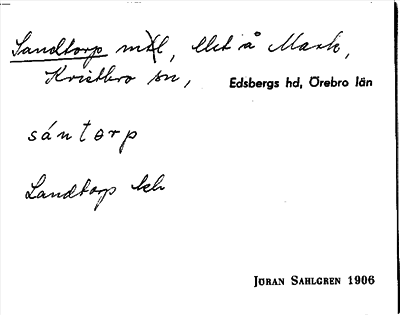 Sandtorp mtl, Ulet å Mark,
Kristbro sn, Edsbergs hd, Örebro län
sántorp
Sandtorp
JÖRAN SAHLGREN 1906